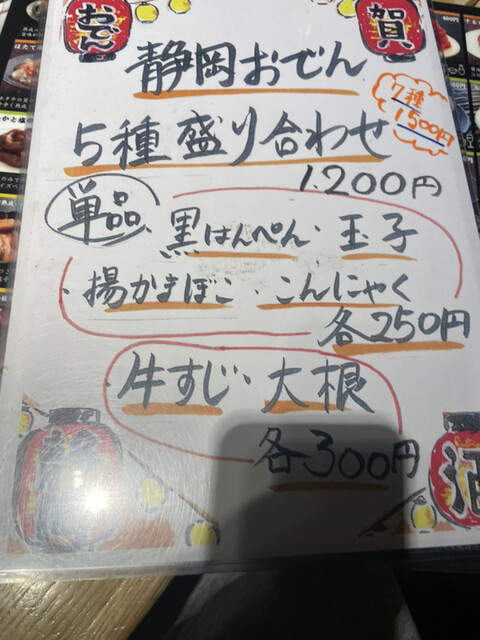 おでん
賀
静岡おでん
5種盛り合わせ
7種
1500円
1,200円
単品
黒はんぺん・玉子
・揚かまぼこ・こんにゃく
各250円
・牛すじ・大根
各300円
酒